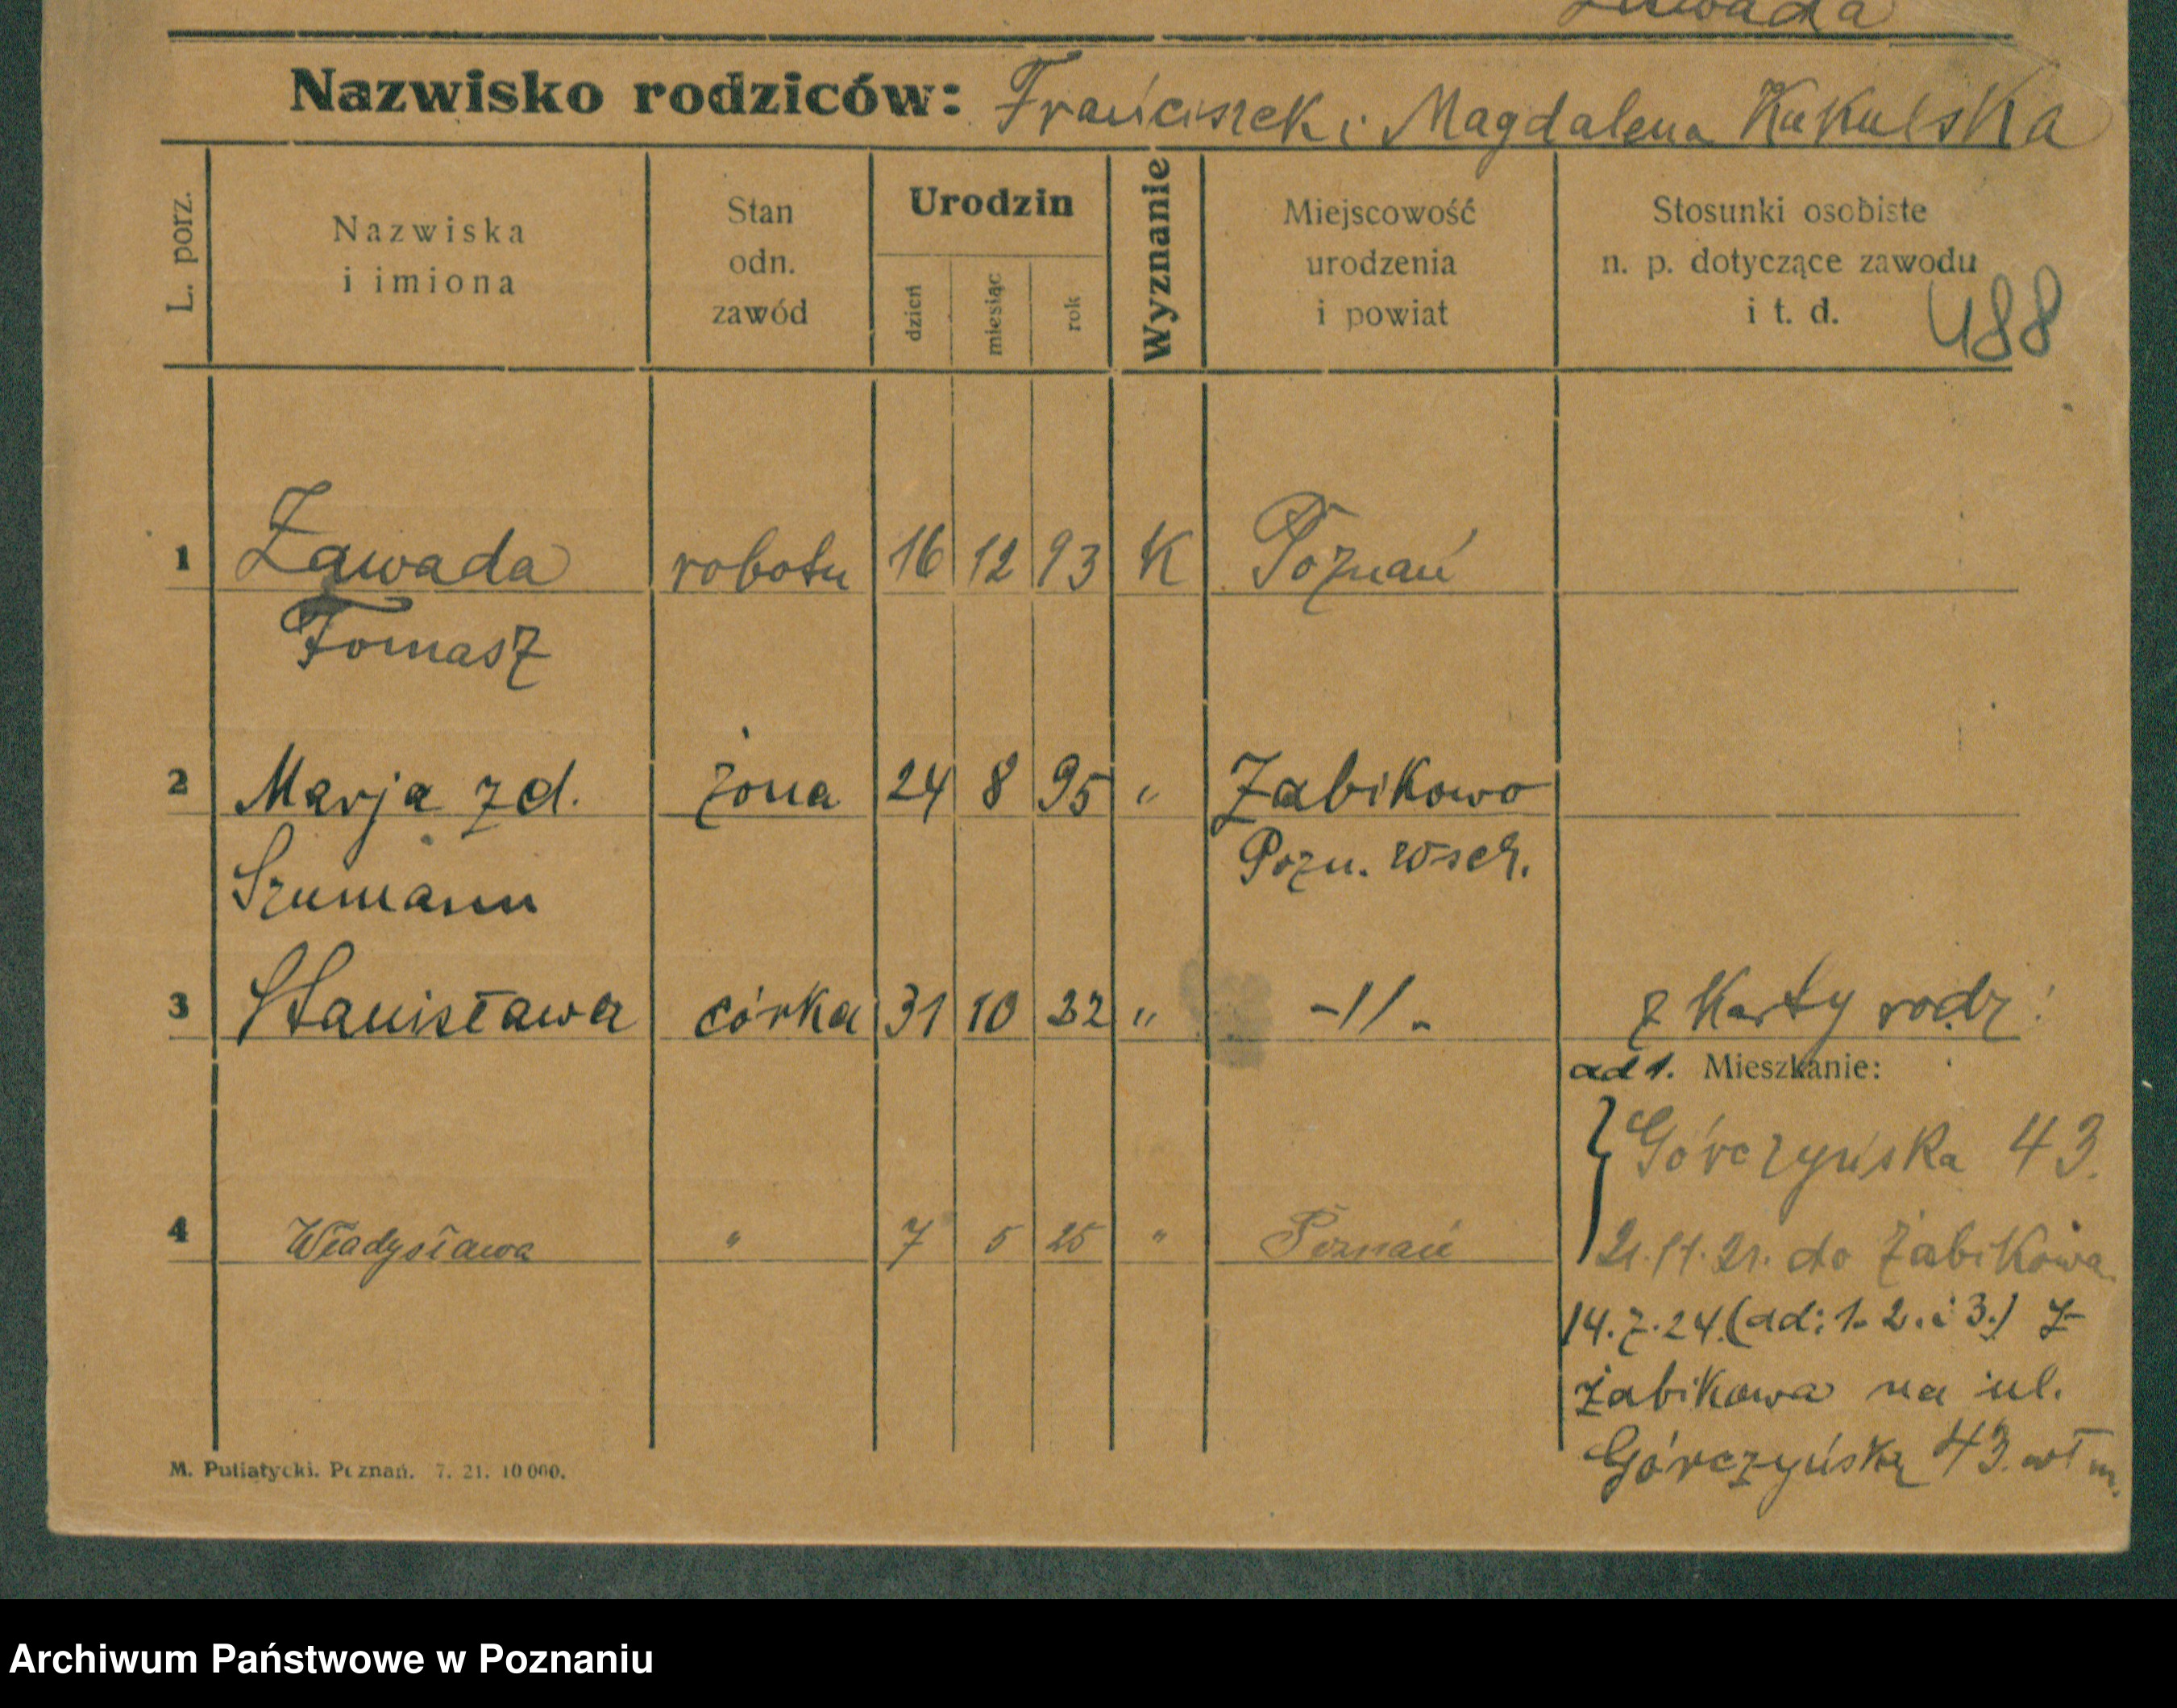 Zawada
Nazwisko rodziców: Franciszek i Magdalena Kukulska
L. porz.
Nazwiska
i imiona
Stan
odn.
zawód
Urodzin
dzień
miesiąc
rok
Wyznanie
Miejscowość
urodzenia
i powiat
Stosunki osobiste
n. p. dotyczące zawodu
i t. d.
488
1 Zawada robotn 16 12 93 K Poznań
Tomasz
2 Marja zd. żona 24 8 95 " Żabikowo
Szumann Pozn. wsch.
3 Stanisława córka 31 10 22 " -//- z Karty rodz:
ad 1. Mieszkanie:
Górczyńska 43.
4 Władysława " 7 5 25 " Poznań
21.11.21. do Żabikowa
14.7.24. (ad: 1. 2. i 3.) z
Żabikowa na ul.
Górczyńską 43.
M. Putiatycki. Poznań. 7. 21. 10 000.
Archiwum Państwowe w Poznaniu